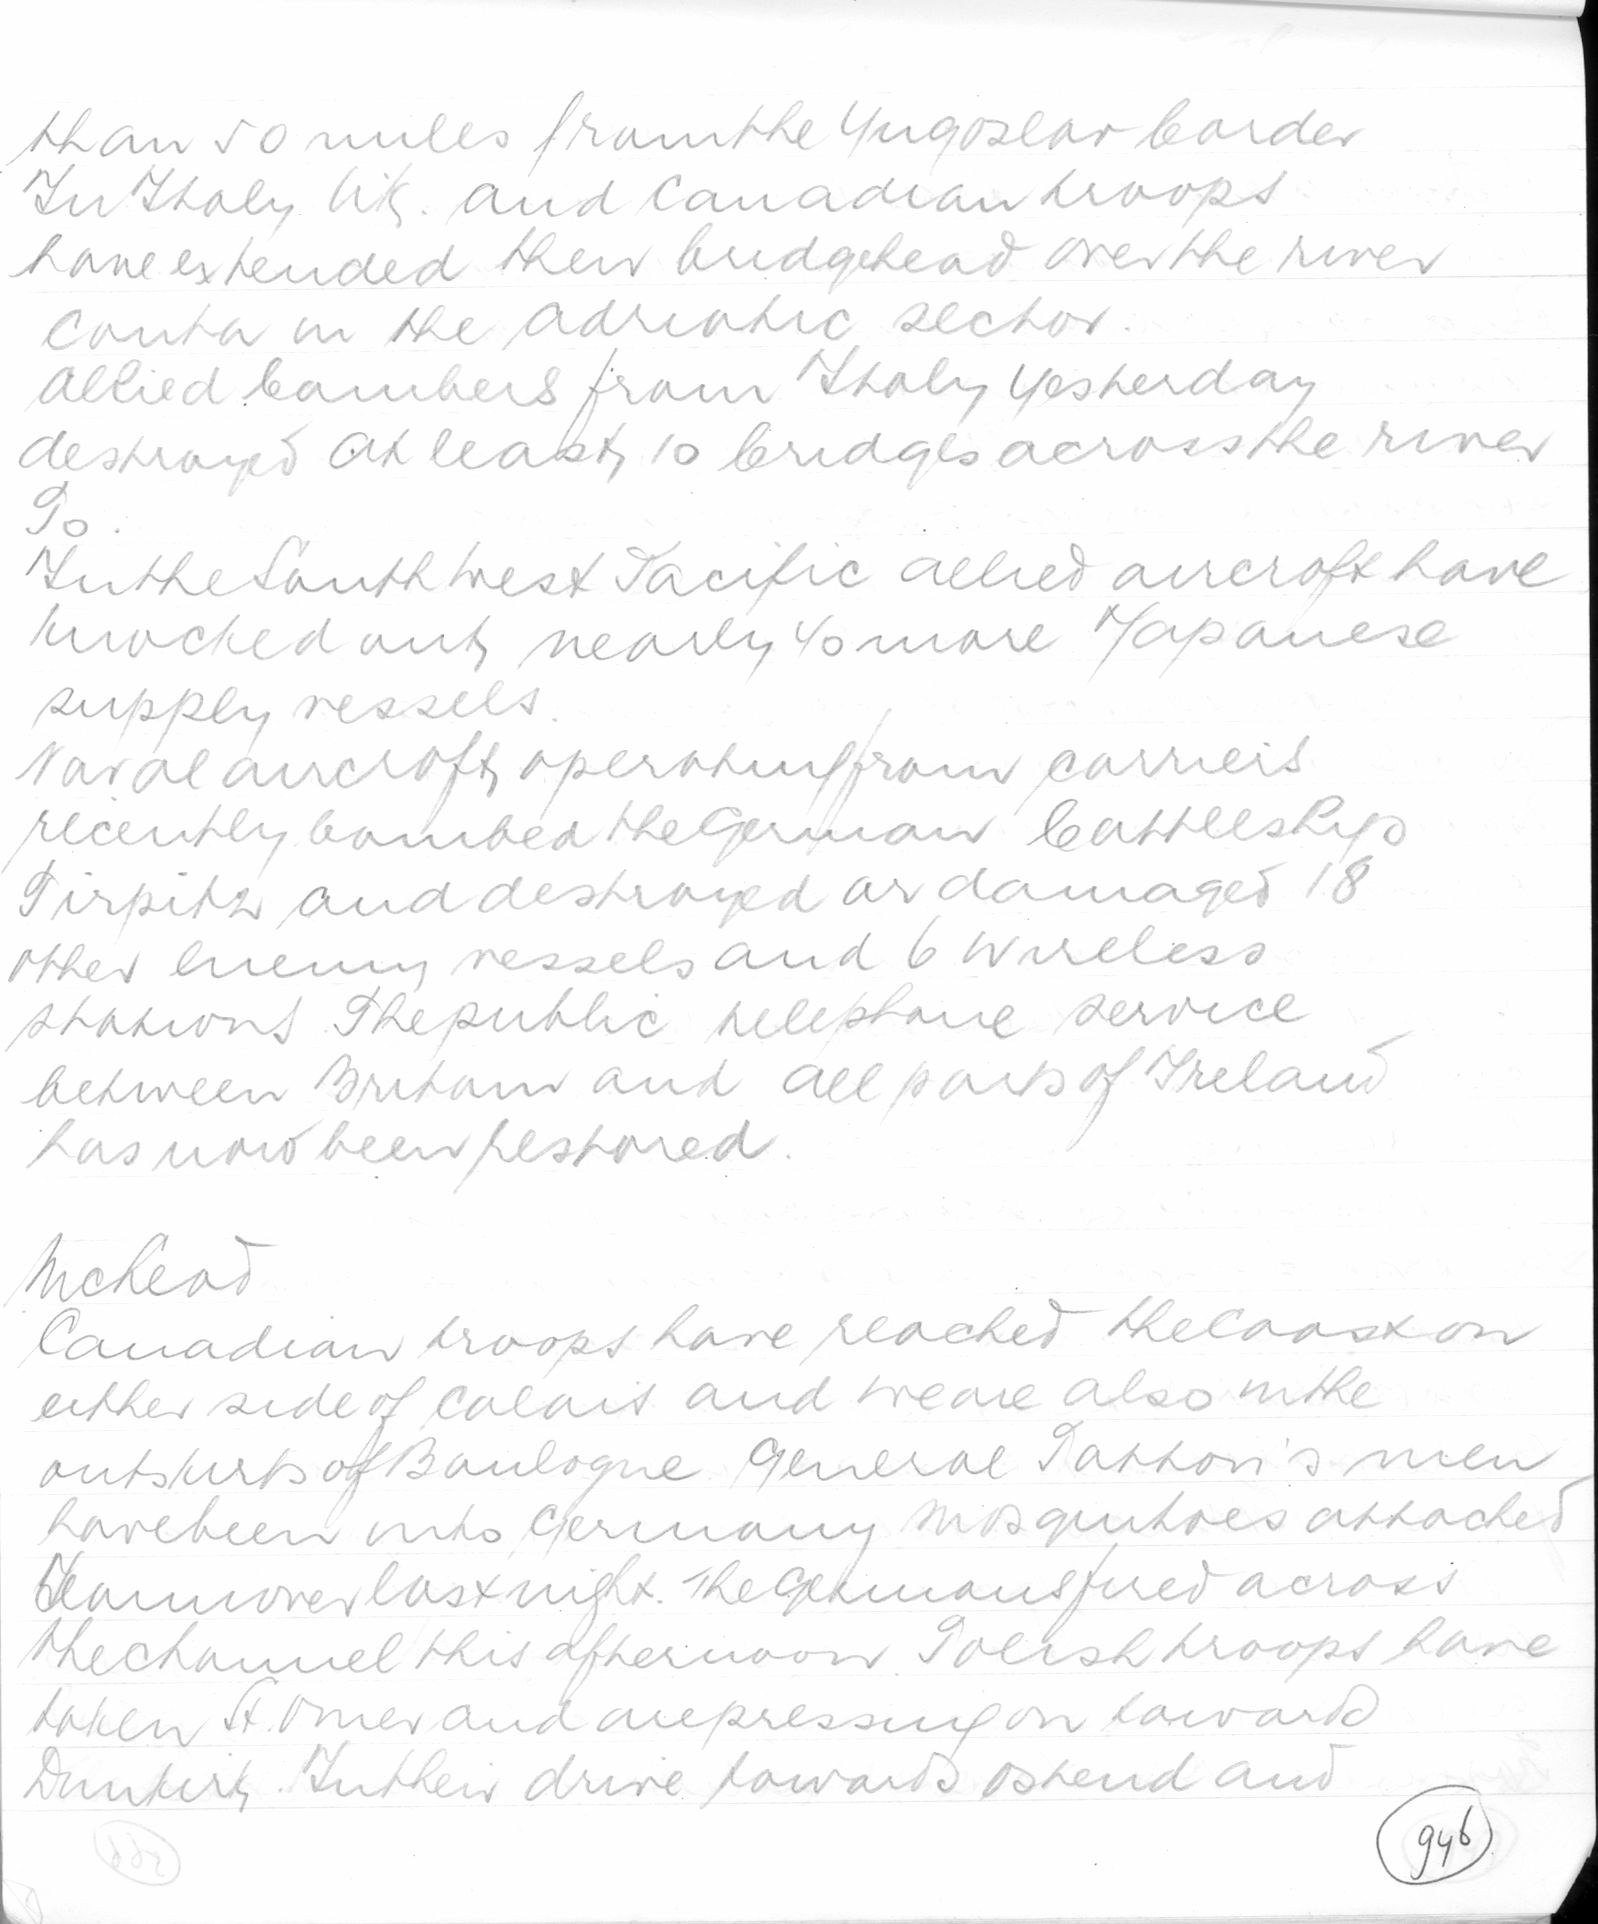 than 50 miles from the Yugoslav border
In Italy Brit. and Canadian troops
have extended their bridgehead over the river
Conta in the Adriatic sector.
Allied bombers from Italy yesterday
destroyed at least 10 bridges across the river
Po.
In the South West Pacific allied aircraft have
knocked out nearly 40 more Japanese
supply vessels.
Naval aircraft operating from carriers
recently bombed the German battleship
Tirpitz and destroyed or damaged 18
other enemy vessels and 6 wireless
stations. The public telephone service
between Britain and all parts of Ireland
has now been restored.
Canadian troops have reached the Coast on
either side of Calais and we are also in the
outskirts of Boulogne General Patton's men
have been into Germany Mosquitoes attacked
Hannover last night. The Germans fired across
the channel this afternoon. Polish troops have
taken St. Omer and are pressing on towards
Dunkirk. In their drive towards Ostend and
946